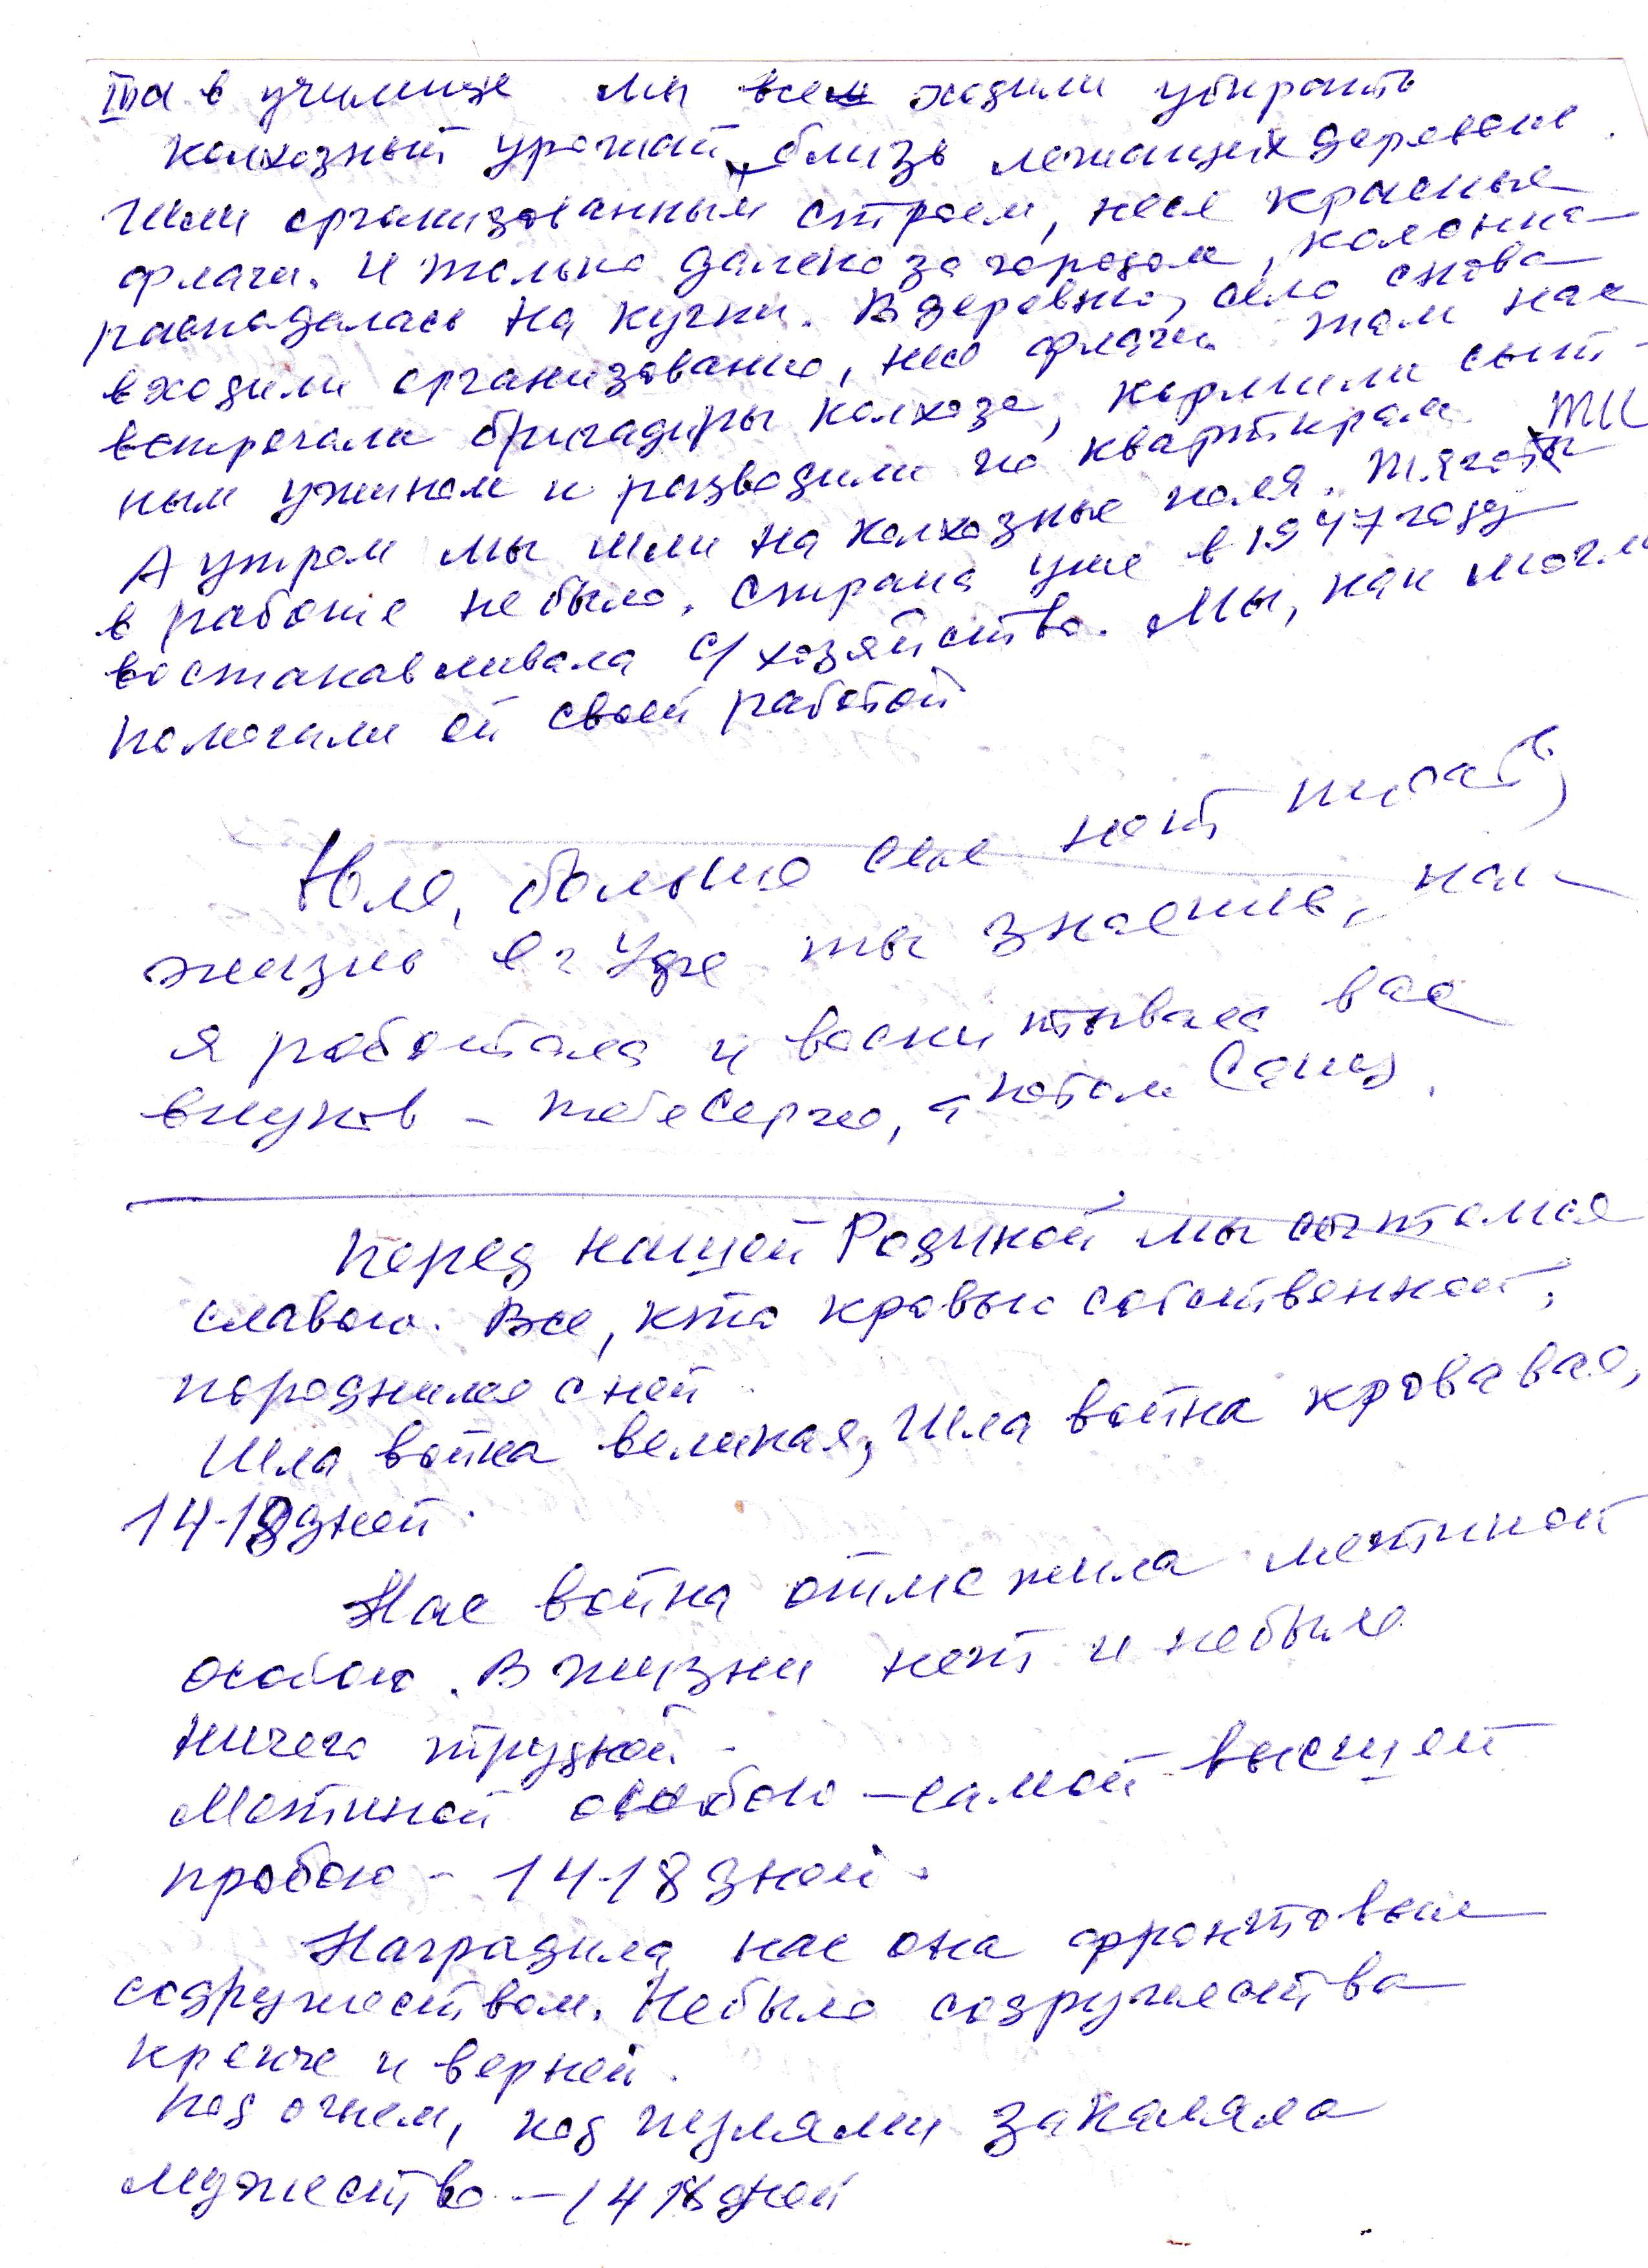 IIIа в училище мы всем ходили убирать
колхозный урожай, близь лежащих деревень.
Шли организованным строем, неся красные
флаги. И только далеко за городом, колонна
распадалась на кучки. В деревню, село снова
входили организованно, неся флаги. Там нас
встречали бригадиры колхоза, кормили сыт-
ным ужином и разводили по квартирам.
А утром мы шли на колхозные поля. Тяготы
в работе не было. Страна уже в 1947 году
востанавливала с/хозяйство. Мы, как могли
помогали ей своей работой
Юля, больше сил нет писать,
жизнь в г Уфе ты знаешь, как
я работала и воспитывала вас
внуков – тебя Сержо, а потом Сашу.
Перед нашей Родиной мы сочтемся
славою. Все, кто кровью собственной,
породнился с ней
Шла война великая, Шла война кровавая,
14-18 дней.
Нас война отметила метиной
особою. В жизни нет и не было
ничего трудней –
Метиной особою – самой высшей
пробою – 14-18 дней.
Наградила нас она фронтовым
содружеством. Не было содружества
крепче и верней.
Под огнем, под пулями закаляла
мужество – 1418 дней